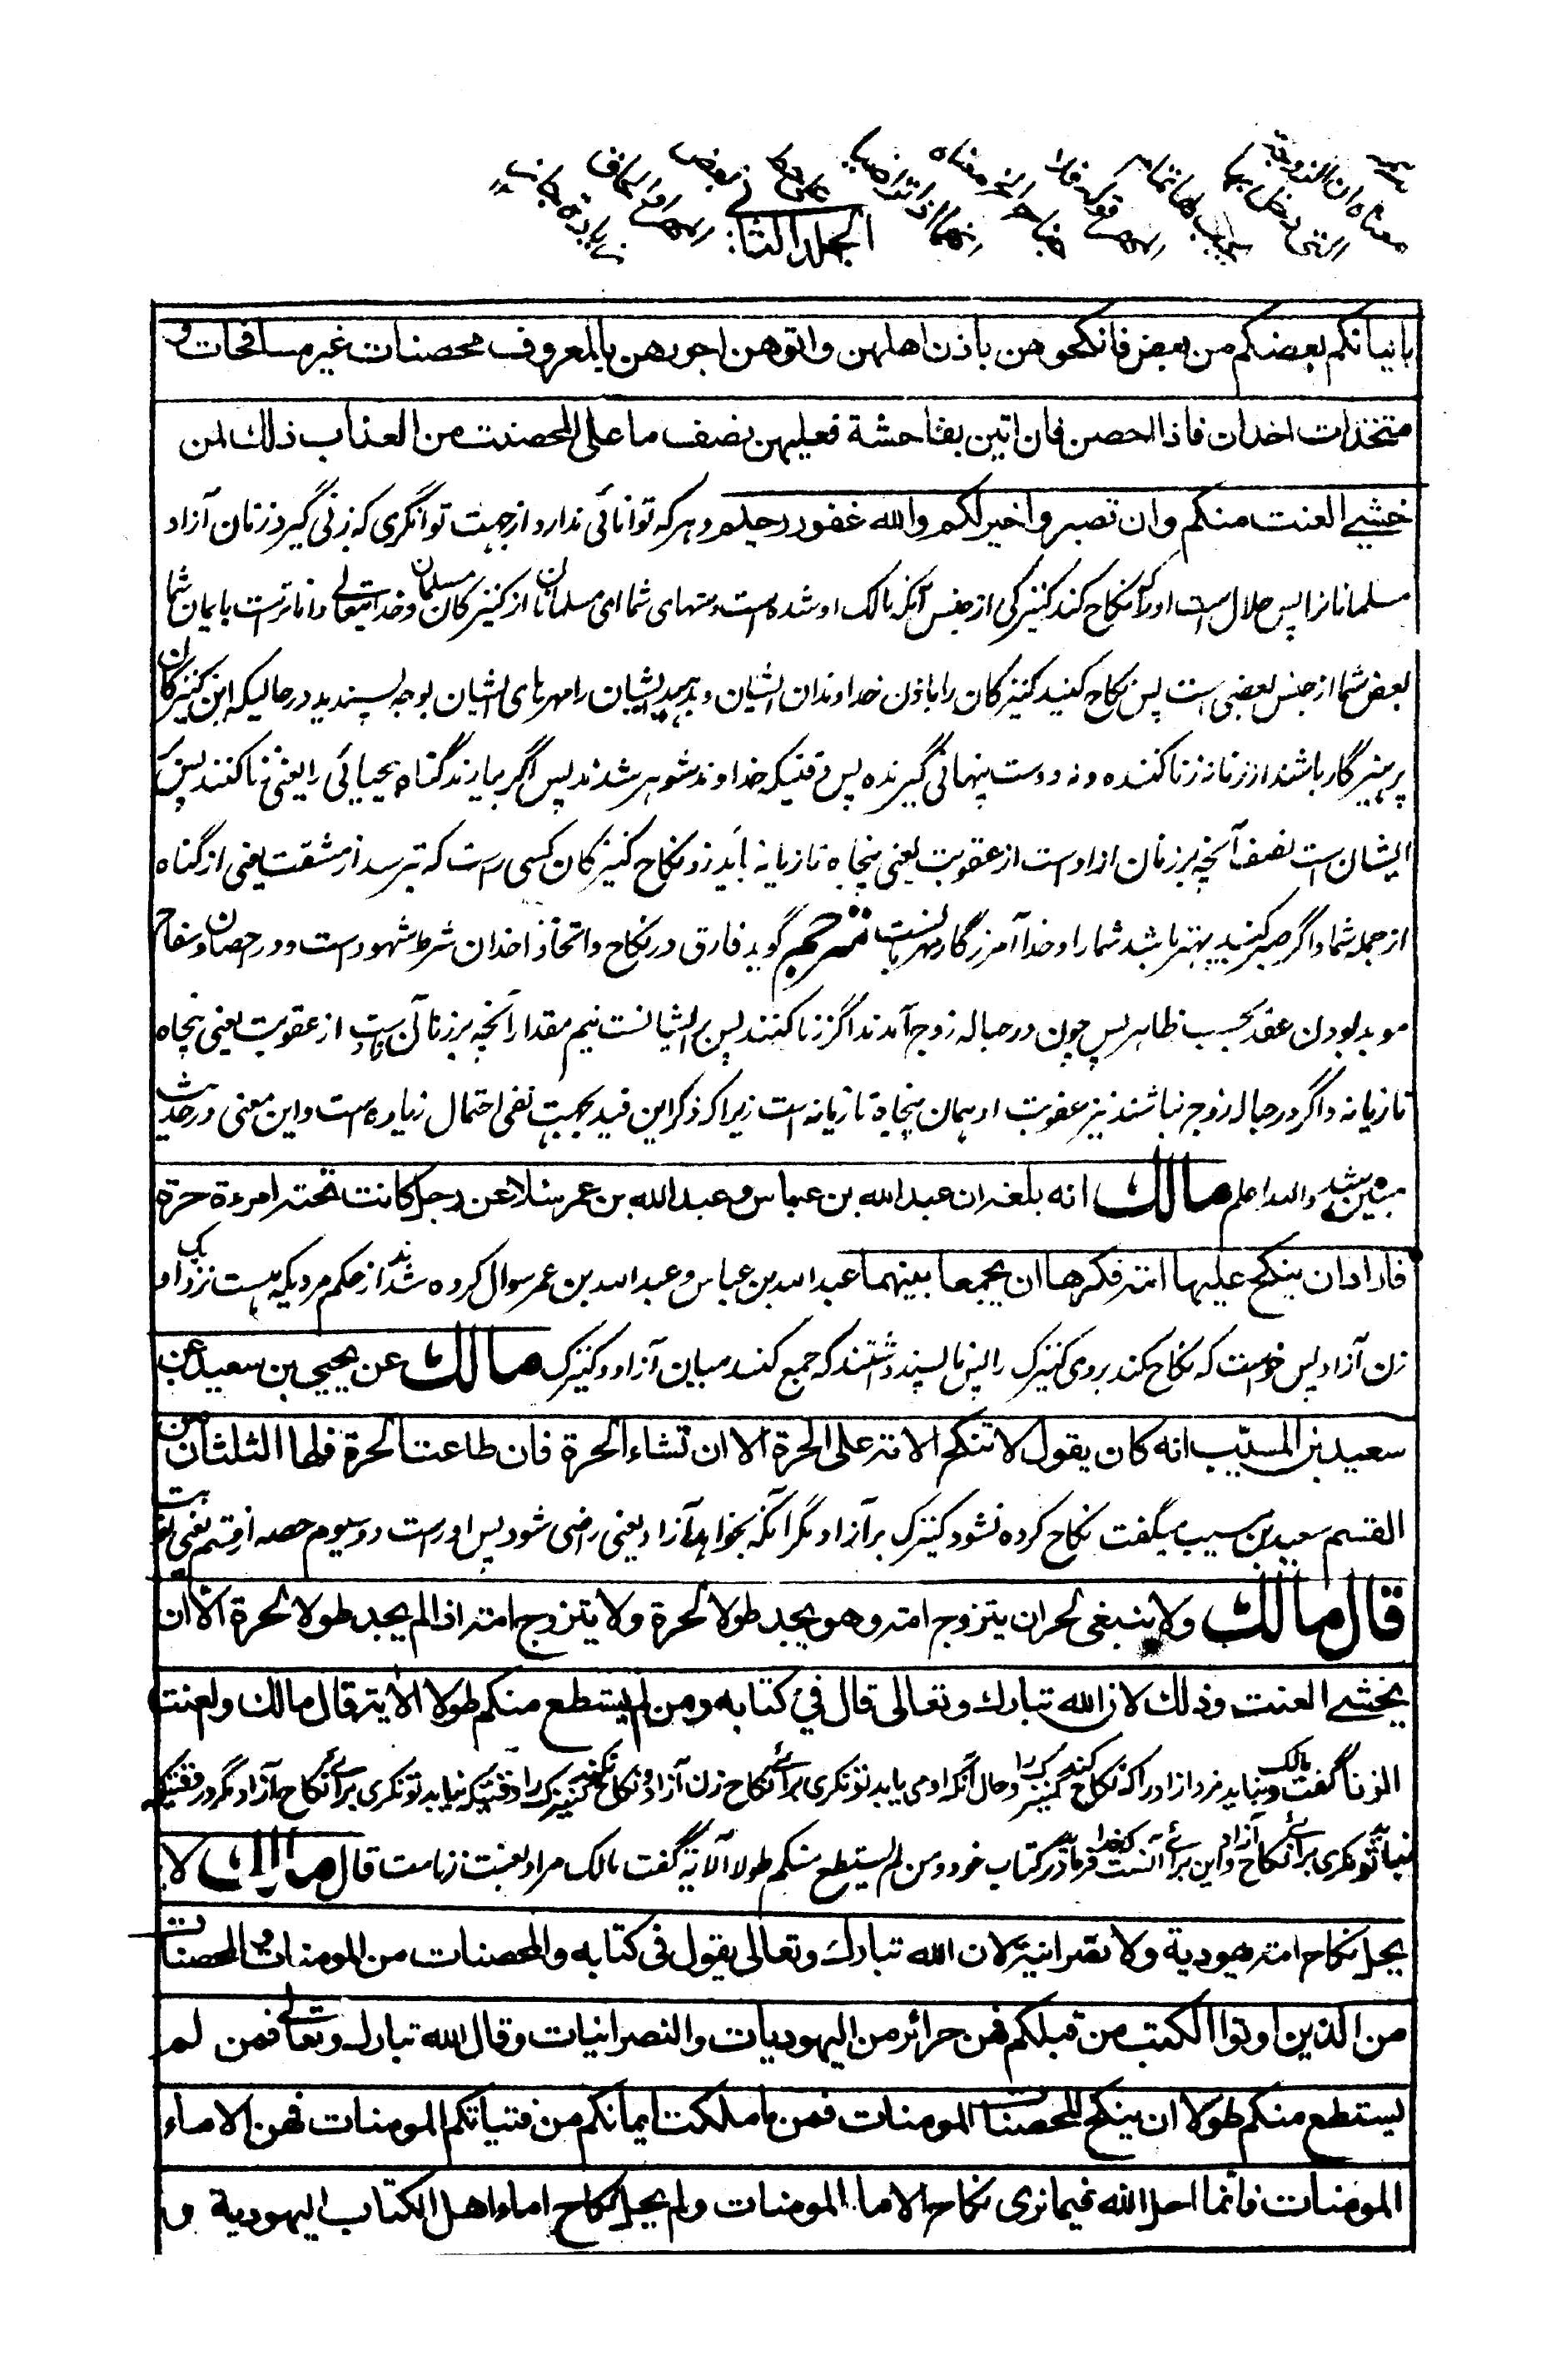 الجلد الثاني
بايمانكم بعضكم من بعض فانكحوهن باذن اهلهن واتوهن اجورهن بالمعروف محصنات غير مسافحات و
متخذات اخدان فاذا احصن فان اتين بفاحشة فعليهن نصف ما على المحصنت من العذاب ذلك لمن
خشي العنت منكم وان تصبروا خير لكم والله غفور رحيم و هر که توانائی ندارد از جهت توانگری که بزنی گیرد زنان آزاد
مسلمانانرا پس حلال است او را که نکاح کند کنیزکی از جنس آنکه مالک او شده است دستهای شما ای مسلمانان از کنیزکان مسلمان و خدایتعالی داناترست بایمان شما
بعض شما از جنس بعضی است پس نکاح کنید کنیزکان را باذن خداوندان ایشان و بدهید ایشان را مهرهای ایشان بوجه پسندیده در حالیکه این کنیزکان
پرهیزگار باشند از زنا نه زنا کننده و نه دوست پنهانی گیرنده پس وقتیکه خداوند شوهر شدند پس اگر بیارند گناه بیحیائی را یعنی زنا کنند پس بر
ایشان است نصف آنچه بر زنان آزاد است از عقوبت یعنی پنجاه تازیانه باید زد و نکاح کنیزکان کسی راست که بترسد از مشقت یعنی از گناه
از جمله شما و اگر صبر کنید بهتر باشد شما را و خدا آمرزگار مهربانست مترجم گوید فارق در نکاح و اتخاذ اخدان شرط شهود است و در احصان و سفاح
موبد بودن عقد بحسب ظاهر پس چون در حباله زوج آمدند اگر زنا کنند پس بر ایشانست نیم مقدار آنچه بر زنان آزاد است از عقوبت یعنی پنجاه
تازیانه و اگر در حباله زوج نباشند نیز عقوبت او همان پنجاه تازیانه است زیرا که ذکر این قید بجهت نفی احتمال زیاده است و این معنی در حدیث
مبین شد والله اعلم مالك انه بلغه ان عبد الله بن عباس و عبد الله بن عمر سئلا عن رجل كانت تحته امرءة حرة
فاراد ان ينكح عليها امة فكرها ان يجمعا بينهما عبد الله بن عباس و عبد الله بن عمر سوال کرده شدند از حکم مردیکه هست نزدیک او
زن آزاد پس خواست که نکاح کند بروی کنیزک را پس ناپسند داشتند که جمع کنند میان آزاد و کنیزک مالك عن يحيى بن سعيد عن
سعيد بن المسيّب انه كان يقول لا تنكح الامة على الحرة الا ان تشاء الحرة فان طاعت الحرة فلها الثلثان من
القسم سعید بن مسیب میگفت نکاح کرده نشود کنیزک بر آزاد مگر آنکه بخواهد آزاد یعنی راضی شود پس او راست دو سیوم حصه از قسم یعنی
قال مالك ولا ينبغي لحر ان يتزوج امة و هو يجد طولا لحرة ولا يتزوج امة اذا لم يجد طولا لحرة الا ان
يخشى العنت وذلك لان الله تبارك وتعالى قال في كتابه ومن لم يستطع منكم طولا الاية قال مالك والعنت
الزنا گفت مالک و نباید مرد آزاد را که نکاح کند کنیزک را و حال آنکه او می یابد تونگری برائے نکاح زن آزاد و نکاح نکند کنیزک را وقتیکه نیابد تونگری برائے نکاح آزاد مگر در وقتیکه
نیابد تونگری برائے نکاح آزاد و این برائے آنست که خدا فرمود در کتاب خود و من لم یستطع منکم طولا الآیة گفت مالک مراد بعنت زناست قال مالك لا
يحل نكاح امة يهودية ولا نصرانية لان الله تبارك وتعالى يقول فى كتابه والمحصنات من المومنات والمحصنات
من الذين اوتوا الكتب من قبلكم فهن حرائر من اليهوديات والنصرانيات وقال الله تبارك وتعالى فمن لم
يستطع منكم طولا ان ينكح المحصنات المومنات فمن ما ملكت ايمانكم من فتياتكم المومنات فهن الاماء
المومنات فانما احل الله فيما نرى نكاح الاماء المومنات ولم يحل نكاح اماء اهل الكتاب اليهودية و